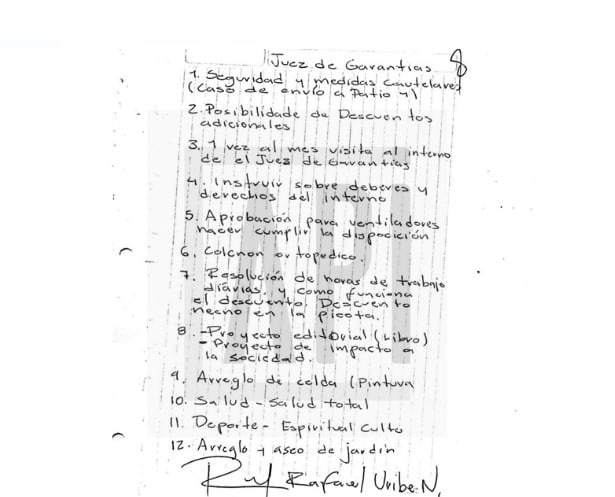 Juez de Garantias 8
1. Seguridad y medidas cautelares
(Caso de envio a Patio 4)
2. Posibilidade de Descuentos
adicionales
3. 1 vez al mes visita al interno
de el Juez de Garantias
4. Instruir sobre deberes y
derechos del interno
5. Aprobación para ventiladores
hacer cumplir la disposición
6. Colchon ortopedico.
7. Resolución de horas de trabajo
diarias, y como funciona
el descuento. Descuento
hecho en la picota.
8. - Proyecto editorial (Libro)
- Proyecto de impacto a
la sociedad.
9. Arreglo de celda (Pintura
10. Salud - Salud total
11. Deporte - Espiritual culto
12. Arreglo y aseo de jardin
Rafael Uribe N.
API